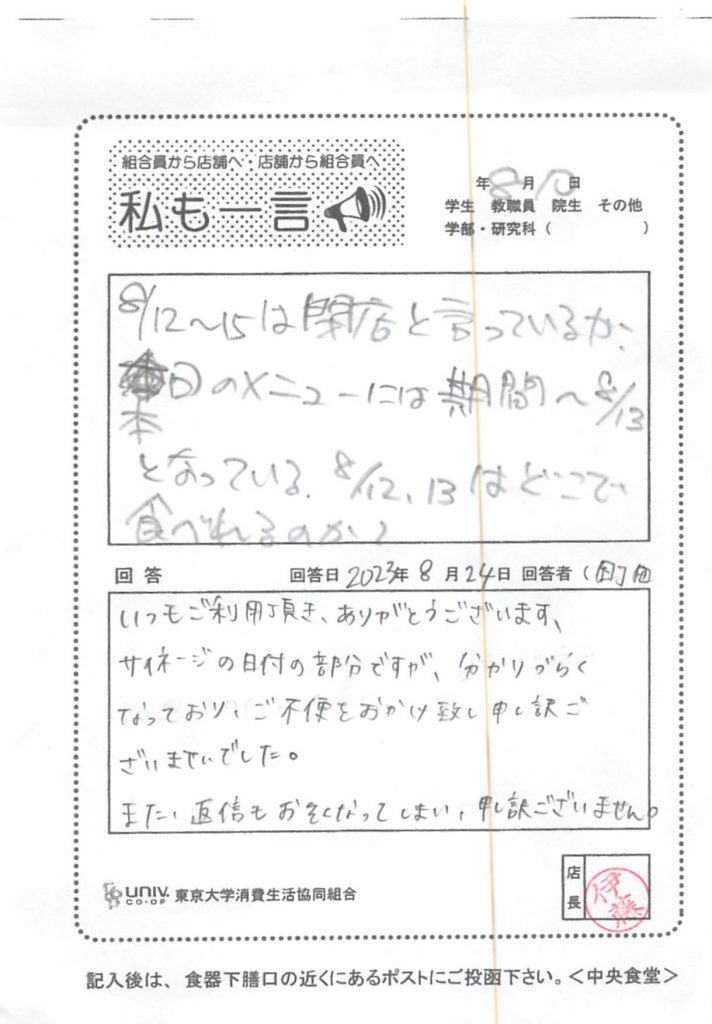 組合員から店舗へ・店舗から組合員へ
私も一言
年8月10日
学生 教職員 院生 その他
学部・研究科( )
8/12～15は閉店と言っているが、
本日のメニューには期間～8/13
となっている。8/12、13はどこで
食べれるのか?
回答 回答日 2023年 8月24日 回答者(町田
いつもご利用頂き、ありがとうございます、
サイネージの日付の部分ですが、分かりづらく
なっており、ご不便をおかけ致し申し訳ご
ざいませんでした。
また、返信もおそくなってしまい、申し訳ございません。
UNIV. CO-OP 東京大学消費生活協同組合
店長 伊藤
記入後は、食器下膳口の近くにあるポストにご投函下さい。＜中央食堂＞